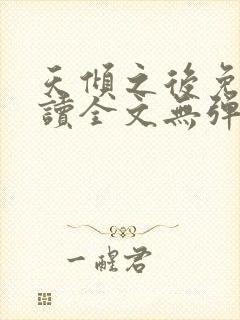 天傾之後免
讀全文無彈
一醒君